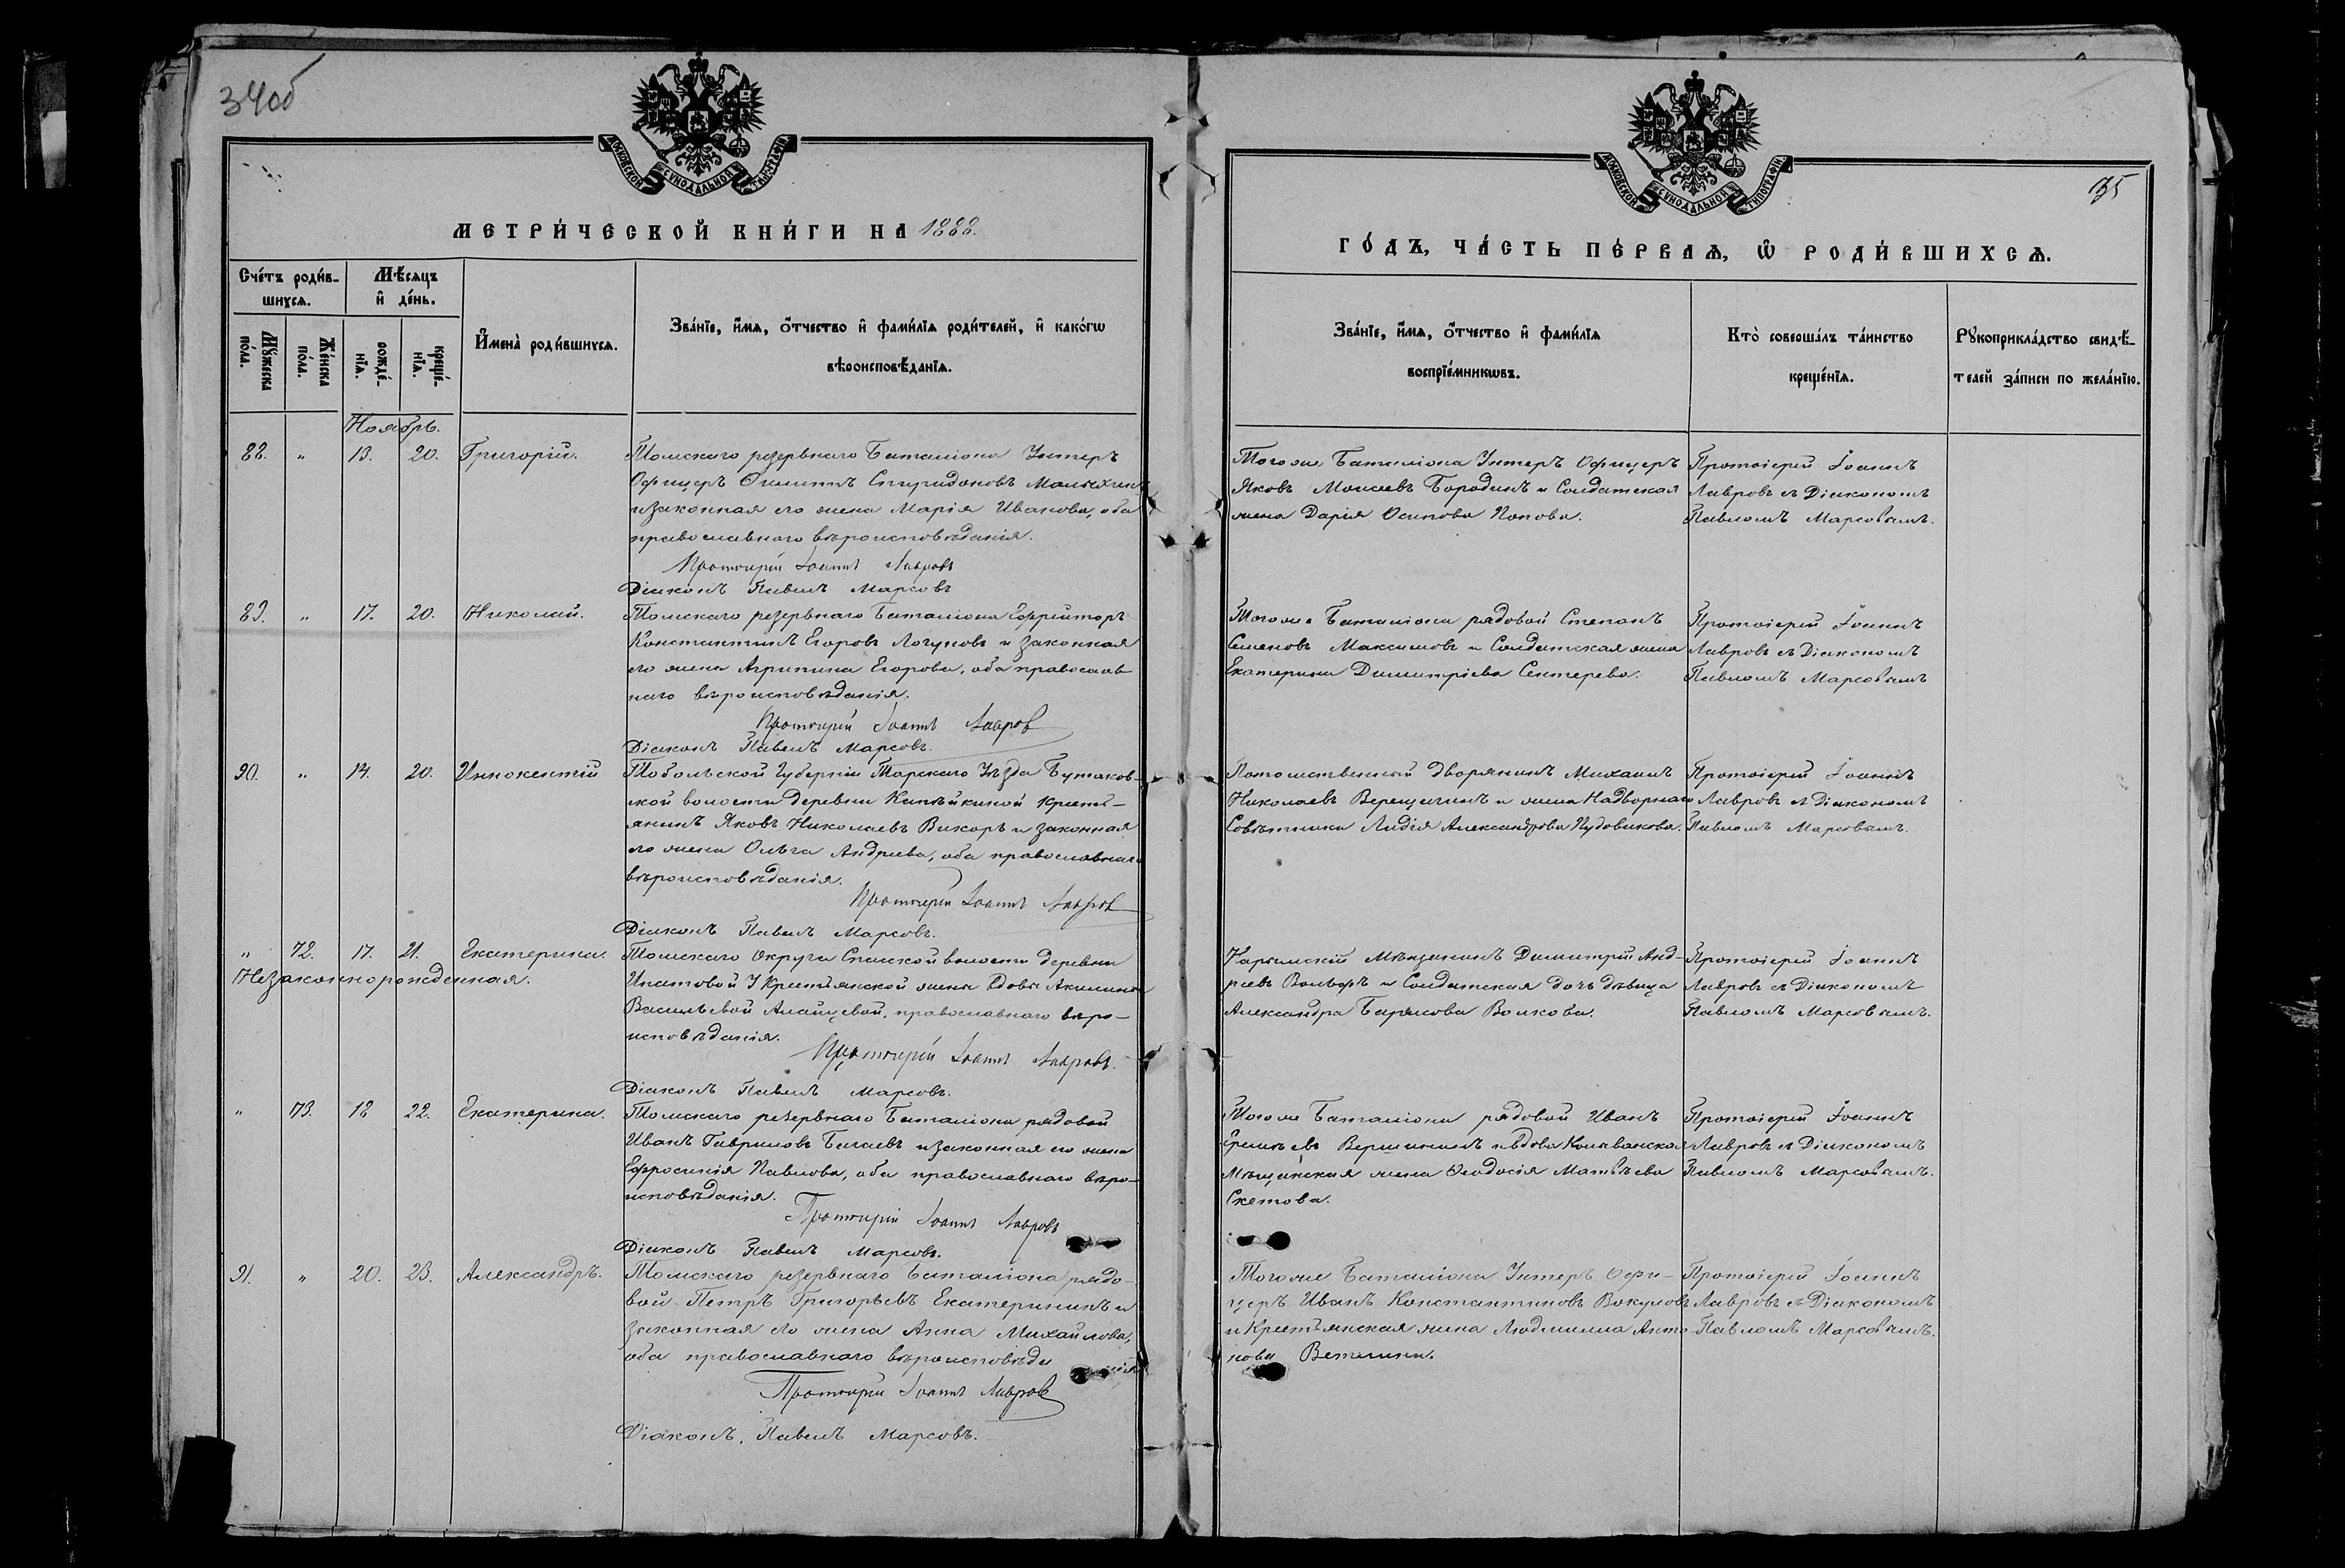 34об
МОСКОВСКОЙ СУНОДАЛЬНОЙ ТИПОГРАФІИ
МЕТРИ́ЧЕСКОЙ КНИ́ГИ НА 1888.
Сче́тъ роди́в-
шихсѧ.
Мѣ́сѧцъ
и҆ де́нь.
Мꙋ́жеска
по́ла.
Же́нска
по́ла.
рожде́-
нїѧ.
креще́-
нїѧ.
И҆мена̀ роди́вшихсѧ.
Зва́нїе, и҆́мѧ, ѻ҆́тчество и҆ фами́лїѧ роди́телей, и҆ како́гѡ
вѣроисповѣ́данїѧ.
Ноябрь.
88. " 13. 20. Григорій. Томскаго резервнаго Баталіона Унтеръ
Офицеръ Филиппъ Спиридоновъ
и законная его жена Марія Иванова, оба
православнаго вѣроисповѣданія.
Протоіерей Іоаннъ Лавровъ
Діаконъ Павелъ Марсовъ
89. " 17. 20. Николай. Томскаго резервнаго Баталіона Ефрейторъ
Константинъ Егоровъ Логуновъ и законная
его жена Агрипина Егорова, оба православ
наго вѣроисповѣданія.
Протоіерей Іоаннъ Лавров
Діаконъ Павелъ Марсовъ.
90. " 14. 20. Иннокентій Тобольской Губерніи Тарскаго Уѣзда Бутаков-
ской волости деревни Кипѣйкиной Кресть-
янинъ Яковъ Николаевъ Викоръ и законная
его жена Ольга Андреева, оба православнаго
вѣроисповѣданія.
Протоіерей Іоаннъ Лавров
Діаконъ Павелъ Марсовъ.
" 72. 17. 21. Екатерина. Томскаго Округа Спасской волости деревни
Незаконнорожденная. Ипатовой У Крестьянской жены Вдовы Акилины
Васильевой Алайцевой, православнаго вѣро-
исповѣданія.
Протоіерей Іоаннъ Лавровъ.
Діаконъ Павелъ Марсовъ.
" 73. 18 22. Екатерина. Томскаго резервнаго Баталіона рядовой
Иванъ Гавриловъ Бигаевъ и законная его жена
Ефросинія Павлова, оба православнаго вѣро-
исповѣданія.
Протоіерей Іоаннъ Лавровъ
Діаконъ Павелъ Марсовъ.
91. " 20. 23. Александръ. Томскаго резервнаго Баталіона рядо-
вой Петръ Григорьевъ Екатерининъ и
законная его жена Анна Михайлова,
оба православнаго вѣроисповѣда
нія
Протоіерей Іоаннъ Лавров
Діаконъ, Павелъ Марсовъ.
МОСКОВСКОЙ СУНОДАЛЬНОЙ ТИПОГРАФІИ
ГО́ДЪ, ЧА́СТЬ ПЕ́РВАѦ, Ѽ РОДИ́ВШИХСѦ.
Зва́нїе, и҆́мѧ, ѻ҆́тчество и҆ фами́лїѧ
воспрїе́мникѡвъ.
Кто̀ соверша́лъ та́инство
креще́нїѧ.
Рꙋкоприкла́дство свидѣ́-
телей за́писи по жела́нїю.
Того же Баталіона Унтеръ Офицеръ
Яковъ Моисеевъ Бородинъ и Солдатская
жена Дарія Осипова Попова.
Протоіерей Іоаннъ
Лавровъ съ Діакономъ
Павломъ Марсовымъ.
Того же Баталіона рядовой Степанъ
Семеновъ Максимовъ и Солдатская жена
Екатерина Димитріева Сентерева.
Протоіерей Іоаннъ
Лавровъ съ Діакономъ
Павломъ Марсовымъ
Потомственный дворянинъ Михаилъ
Николаевъ Верещагинъ и жена Надворнаго
Совѣтника Лидія Александрова Пудовикова.
Протоіерей Іоаннъ
Лавровъ съ Діакономъ
Павломъ Марсовымъ.
Нарымскій Мѣщанинъ Димитрій Анд-
реевъ и Солдатская дочь дѣвица
Александра Борисова Волкова.
Протоіерей Іоаннъ
Лавровъ съ Діакономъ
Павломъ Марсовымъ.
Того же Баталіона рядовой Иванъ
Вершининъ и вдова Колыванская
Мѣщанская жена Ѳеодосія Матвѣева
Скетова.
Протоіерей Іоаннъ
Лавровъ съ Діакономъ
Павломъ Марсовымъ.
Того же Баталіона Унтеръ Офи-
церъ Иванъ Константиновъ Викуловъ
и Крестьянская жена Людмилла Анто-
нова
Протоіерей Іоаннъ
Лавровъ съ Діакономъ
Павломъ Марсовымъ.